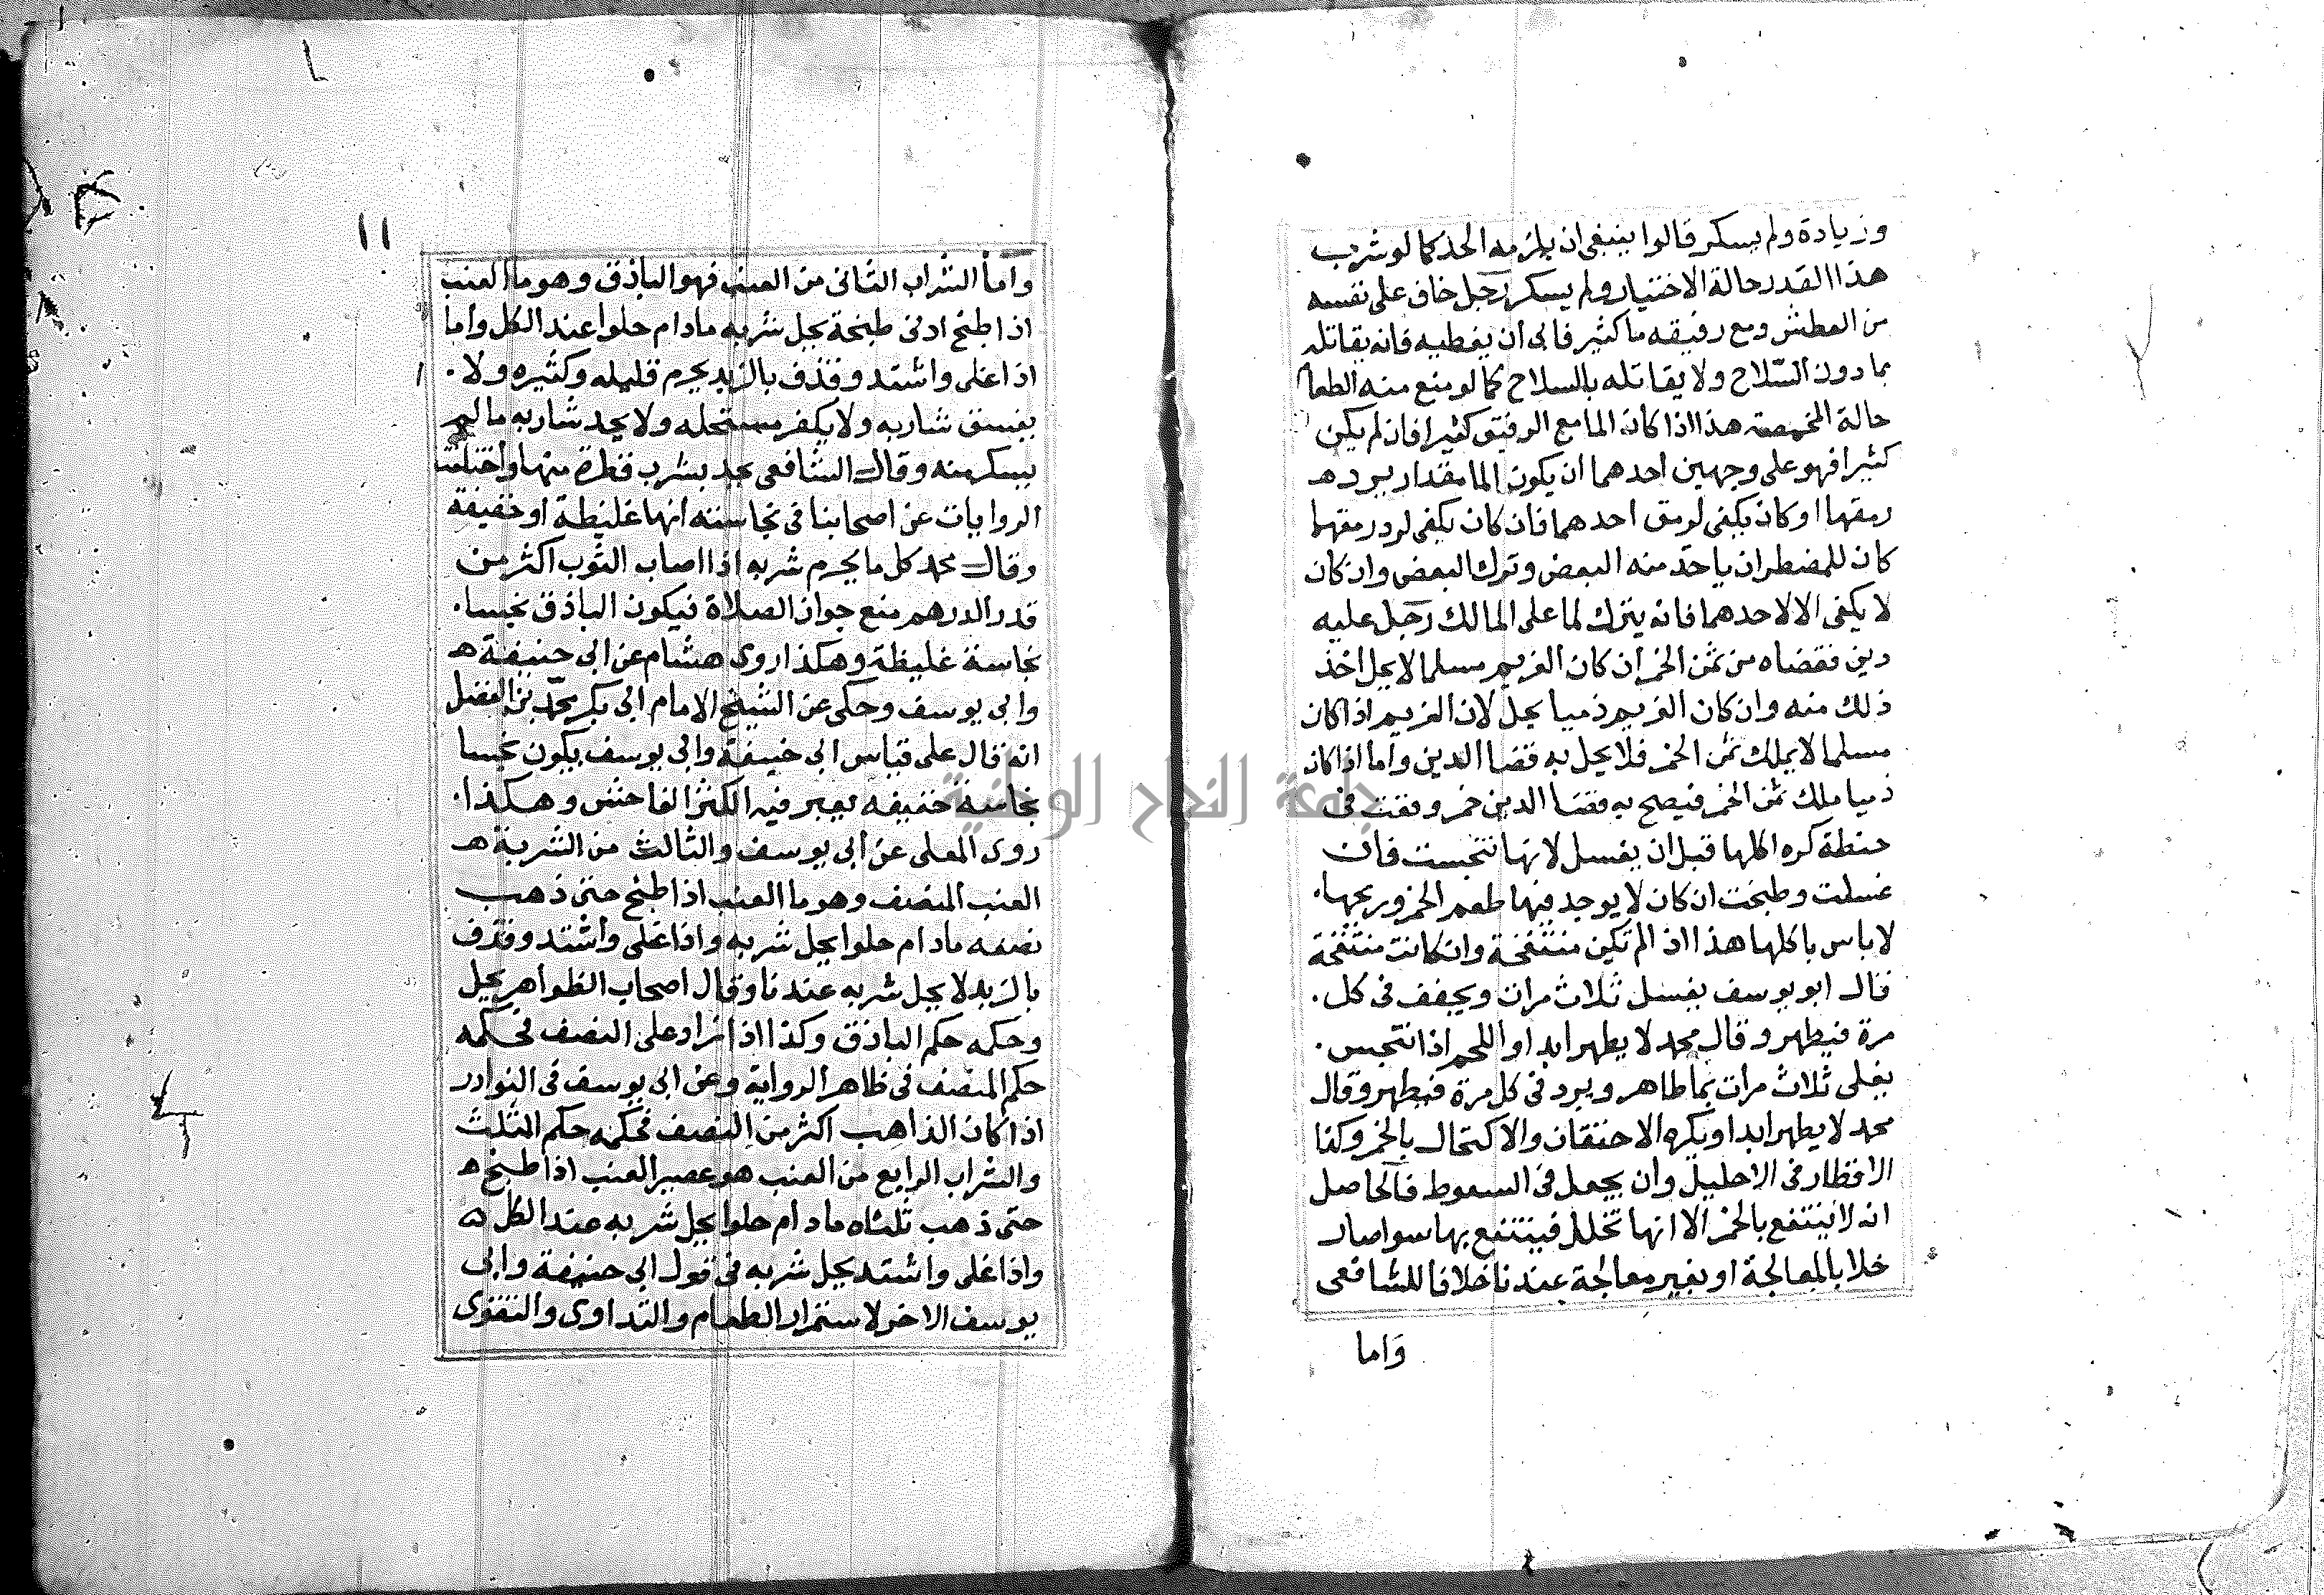 وزيادة ولم يسكر قالوا ينبغى ان يلزمه الحد كما لو شرب
هذا القدر حالة الاختيار ولم يسكر رجل خاف على نفسه
من العطش ومع رفيقه ما كثير فابى ان يعطيه فانه يقاتله
بما دون السّلاح ولا يقاتله بالسلاح كما لو منع منه الطعام
حالة المخمصة هذا اذا كان الما مع الرفيق كثيرا فان لم يكن
كثيرا فهو على وجهين احدهما ان يكون الما مقدار يرد
رمقهما او كان يكفى لرمق احدهما فان كان يكفى لرد رمقهما
كان للمضطر ان ياخذ منه البعض وترك البعض وان كان
لا يكفى الا لاحدهما فانه يترك لما على المالك رجل عليه
دين فقضاه من ثمن الخمر ان كان الغريم مسلما لا يحل اخذ
ذلك منه وان كان الغريم ذميا يحل لان الغريم اذا كان
مسلما لا يملك ثمن الخمر فلا يحل به قضا الدين واما اذا كان
ذميا ملك ثمن الخمر فيصح به قضا الدين خمر وقعت فى
حنطة كره اكلها قبل ان يغسل لانها تنجست فان
غسلت وطبخت ان كان لا يوجد فيها طعم الخمر وريحها.
لا باس باكلها هذا اذا لم تكن منتفخة وان كانت منتفخة
قال ابو يوسف يغسل ثلاث مرات ويجفف فى كل.
مرة فيطهر وقال محمد لا يطهر ابدا و اللحم اذا تنجس.
يغلى ثلاث مرات بما طاهر ويبرد فى كل مرة فيطهر وقال
محمد لا يطهر ابدا ويكره الاحتقان والاكتحال بالخمر وكذا
الاقطار فى الاحليل وان يجعل فى السعوط فالحاصل
انه لا ينتفع بالخمر الا انها تخلل فينتفع بها سوا صار
خلا بالمعالجة او بغير معالجة عندنا خلافا للشافعى
واما
١١
واما الشراب الثانى من العنب فهو الباذق وهو ما العنب
اذا طبخ ادنى طبخة يحل شربه مادام حلوا عند الكل واما
اذا غلى واشتد وقذف بالزبد يحرم قليله وكثيره ولا.
يفسق شاربه ولا يكفر مستحله ولا يحد شاربه ما لم
يسكر منه وقال الشافعى يحد بشرب قطرة منها واختلفت
الروايات عن اصحابنا فى نجاسته انها غليظة او خفيفة
وقال محمد كل ما يحرم شربه اذا اصاب الثوب اكثر من
قدر الدرهم منع جواز الصلاة فيكون الباذق نجسا.
نجاسة غليظة وهكذا روى هشام عن ابى حنيفة
وابى يوسف وحكى عن الشيخ الامام ابى بكر محمد بن الفضل
انه قال على قياس ابى حنيفة وابى يوسف يكون نجسا
نجاسة خفيفه يعبر فيه الكثر الفاحش وهكذا.
روى المعلى عن ابى يوسف والثالث من الشربة
العنب المنصف وهو ما العنب اذا طبخ حتى ذهب
نصفه مادام حلوا يحل شربه واذا غلى واشتد وقذف
بالزبد لا يحل شربه عندنا وقال اصحاب الظواهر يحل
وحكمه حكم الباذق وكذا اذا زاد على النصف فحكمه
حكم المنصف فى ظاهر الرواية وعن ابى يوسف فى النوادر
اذا كان الذاهب اكثر من النصف فحكمه حكم الثلث
والشراب الرابع من العنب هو عصير العنب اذا طبخ
حتى ذهب ثلثاه مادام حلوا يحل شربه عند الكل
واذا غلى واشتد يحل شربه فى قول ابى حنيفة وابى
يوسف الاخر لاستمرار الطعام والتداوى والتقوى
جامعة النجاح الوطنية